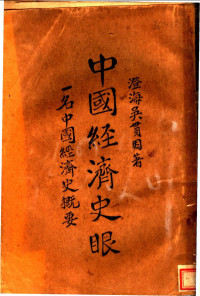 澄海吳貫因著
中國經濟史眼
一名中國經濟史概要